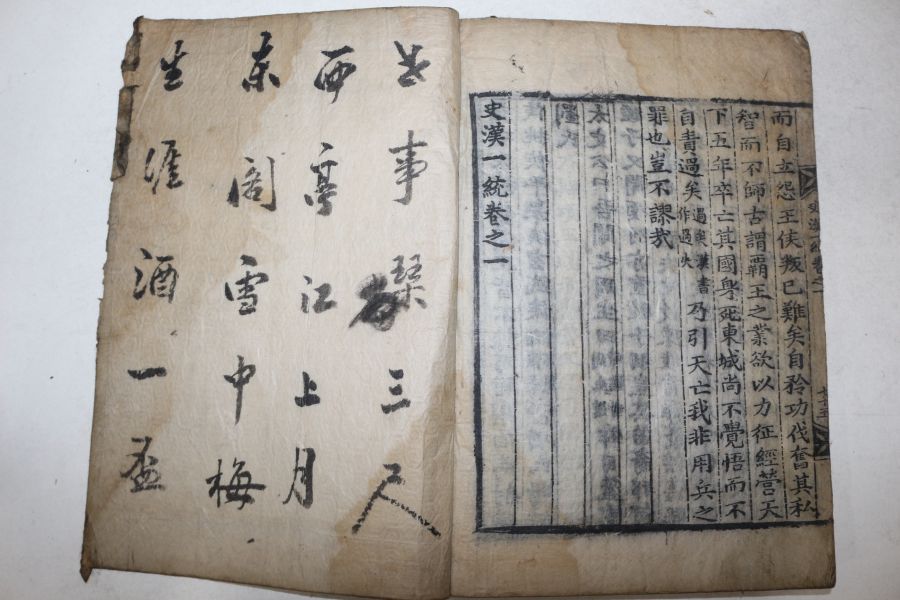 而自立怨王侯叛已難矣自矜功伐奮其私
智而不師古謂覇王之業欲以力征經營天
下五年卒亡其國身死東城尚不覺悟而不
自責過矣過矣漢書作過失乃引天亡我非用兵之
罪也豈不謬哉
史漢一統卷之一
世事琴三尺
西亭江上月
東閣雪中梅
生涯酒一盃